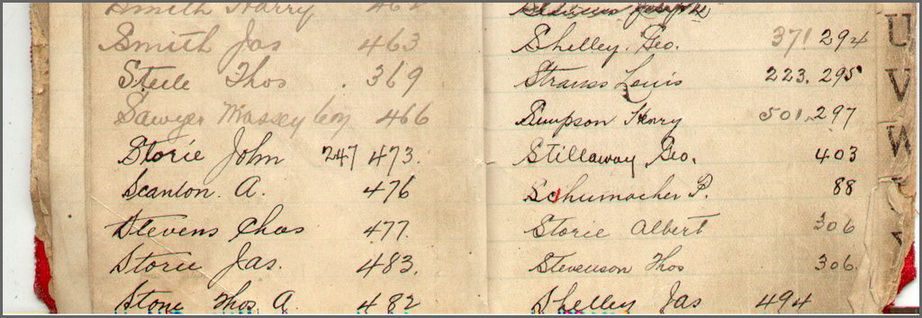 Smith Harry 462
Smith Jas 463
Steele Thos 369
Sawyer Massey Coy 466
Storie John 247 473.
Scanlon. A. 476
Stevens Chas 477.
Storie Jas. 483.
Stone Thos A. 482
Joseph
Shelley. Geo. 371 294
Strauss Louis 223. 295
Simpson Henry 501. 297
Stillaway Geo. 403
Schumacher P. 88
Storie Albert 306
Stevenson Thos 306.
Shelley Jas 494
U
V
W